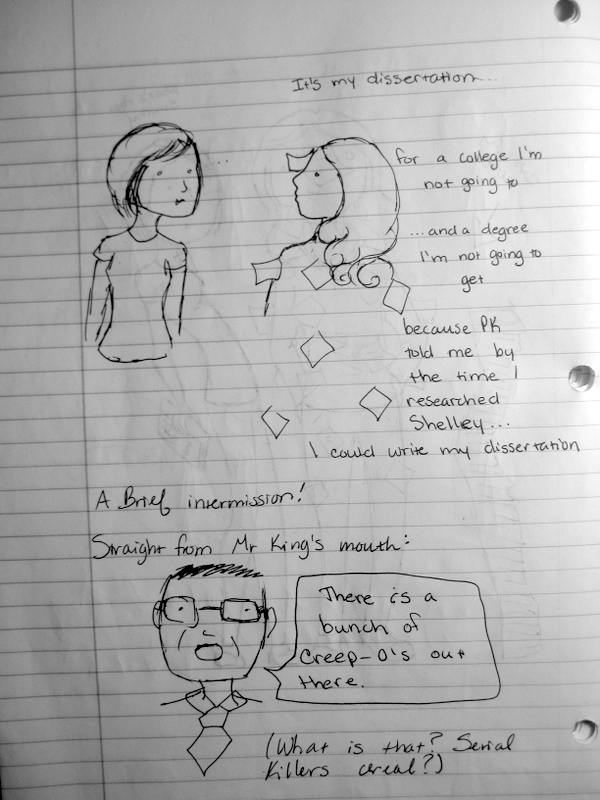 It's my dissertation...
...
for a college I'm
not going to
...and a degree
I'm not going to
get
because PK
told me by
the time I
researched
Shelley...
I could write my dissertation
A Brief intermission!
Straight from Mr King's mouth:
There is a
bunch of
Creep-O's out
there.
(What is that? Serial
Killers cereal?)